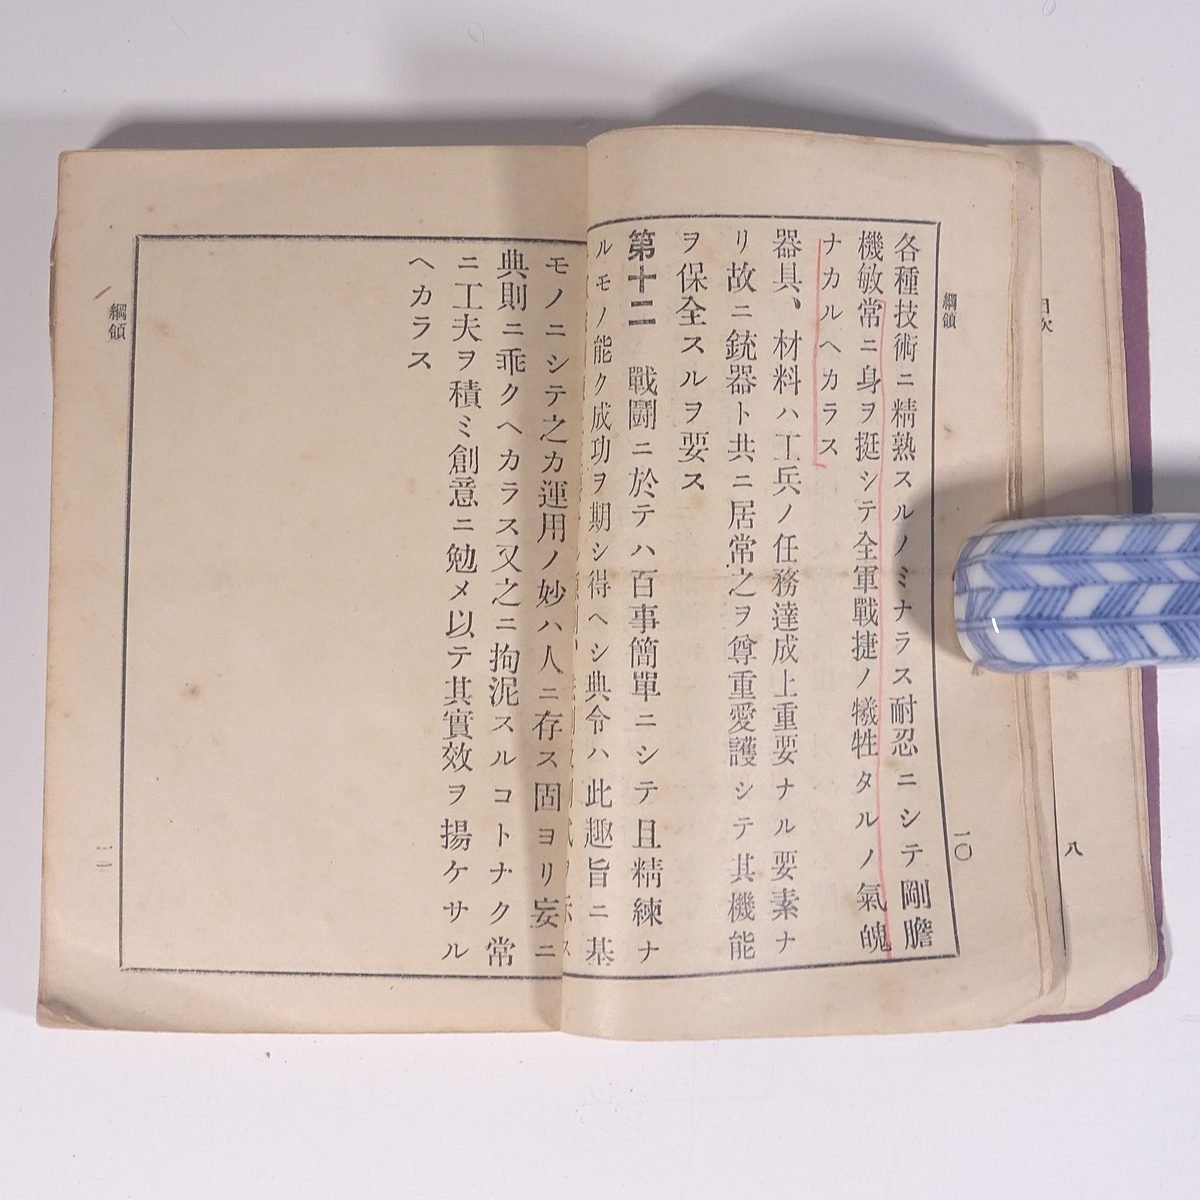 目次
八
綱領
一〇
各種技術ニ精熟スルノミナラス耐忍ニシテ剛膽
機敏常ニ身ヲ挺シテ全軍戰捷ノ犧牲タルノ氣魄
ナカルヘカラス
器具、材料ハ工兵ノ任務達成上重要ナル要素ナ
リ故ニ銃器ト共ニ居常之ヲ尊重愛護シテ其機能
ヲ保全スルヲ要ス
第十二 戰鬪ニ於テハ百事簡單ニシテ且精練ナ
ルモノ能ク成功ヲ期シ得ヘシ典令ハ此趣旨ニ基
モノニシテ之カ運用ノ妙ハ人ニ存ス固ヨリ妄ニ
典則ニ乖クヘカラス又之ニ拘泥スルコトナク常
ニ工夫ヲ積ミ創意ニ勉メ以テ其實效ヲ揚ケサル
ヘカラス
綱領
一一